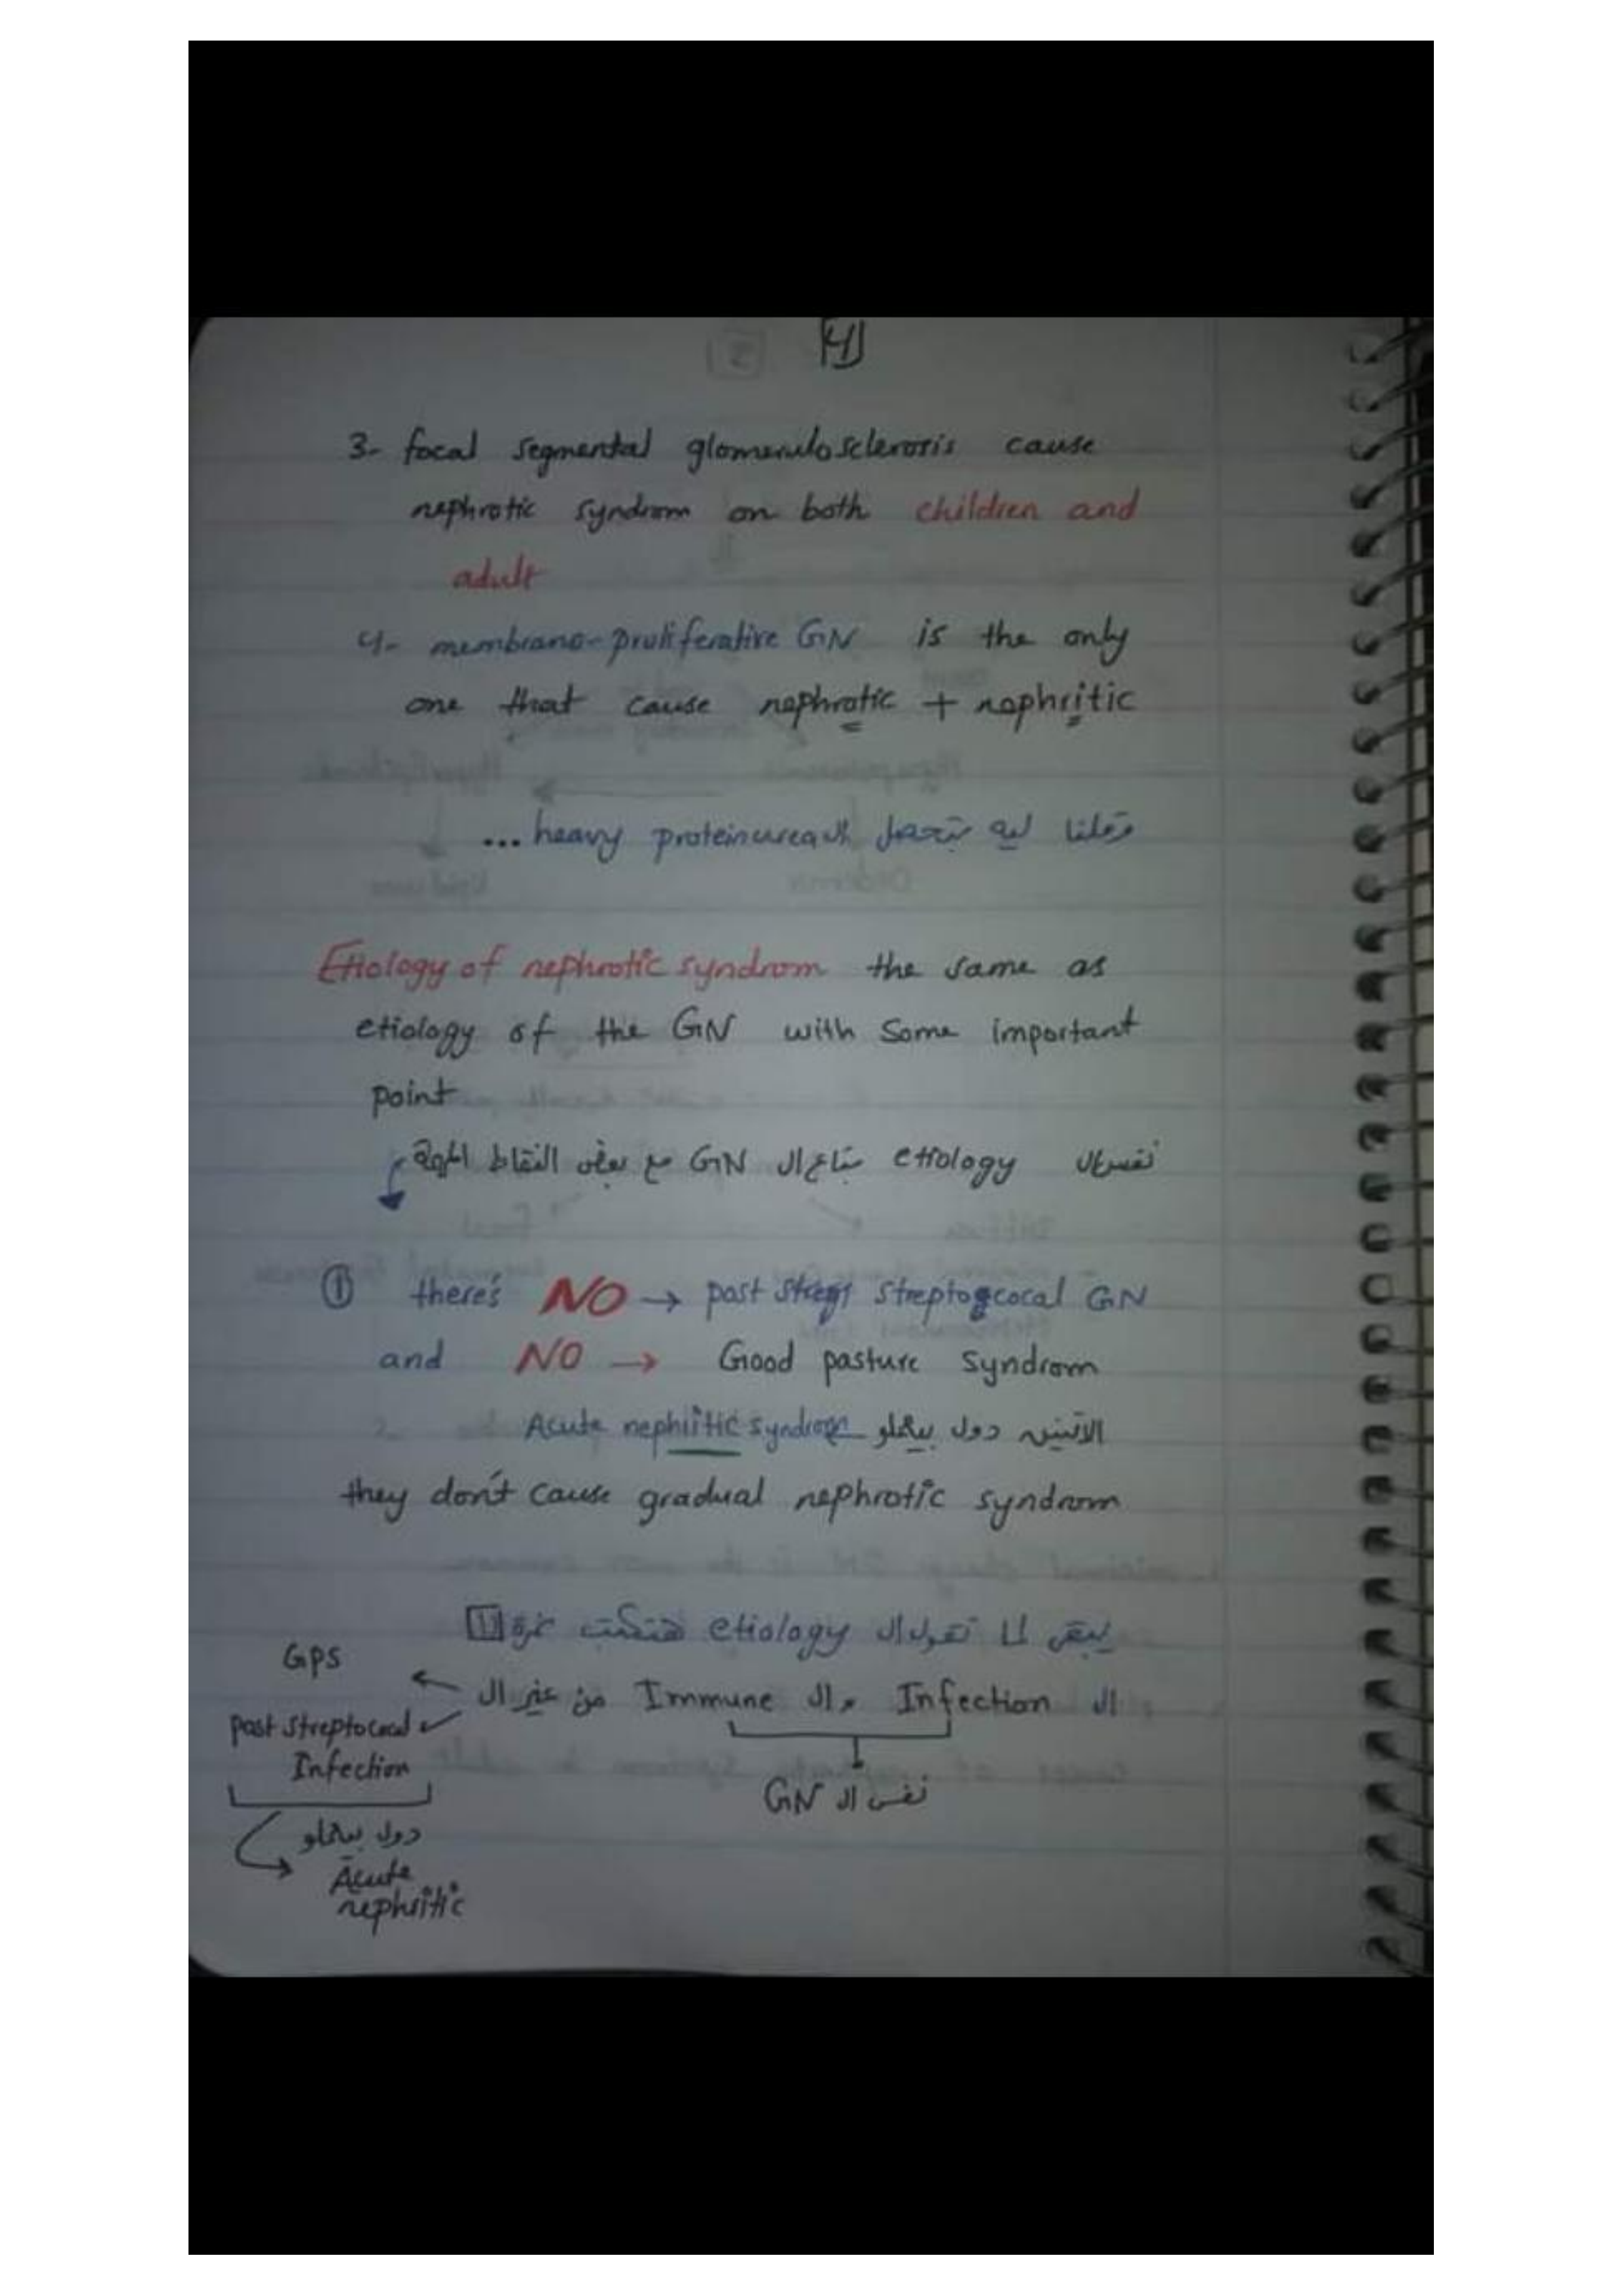 4
3- focal segmental glomerulosclerosis cause
nephrotic syndrom on both children and
adult
4- membrano-proliferative GN is the only
one that cause nephrotic + nephritic
وقلنا ليه بتحصل ال heavy proteinurea ...
Etiology of nephrotic syndrom the same as
etiology of the GN with some important
point
نفس ال etiology بتاع ال GN مع بعض النقاط المهمة
① there's NO → post streptococal GN
and NO → Good pasture syndrom
الاتنين دول بيعملو Acute nephritic syndrom
they don't cause gradual nephrotic syndrom
يبقى لما تقول ال etiology هتكتب نمرة 1
ال Infection و ال Immune من غير ال
GPS
post streptococal
Infection
نفس ال GN
دول بيعملو
Acute
nephritic